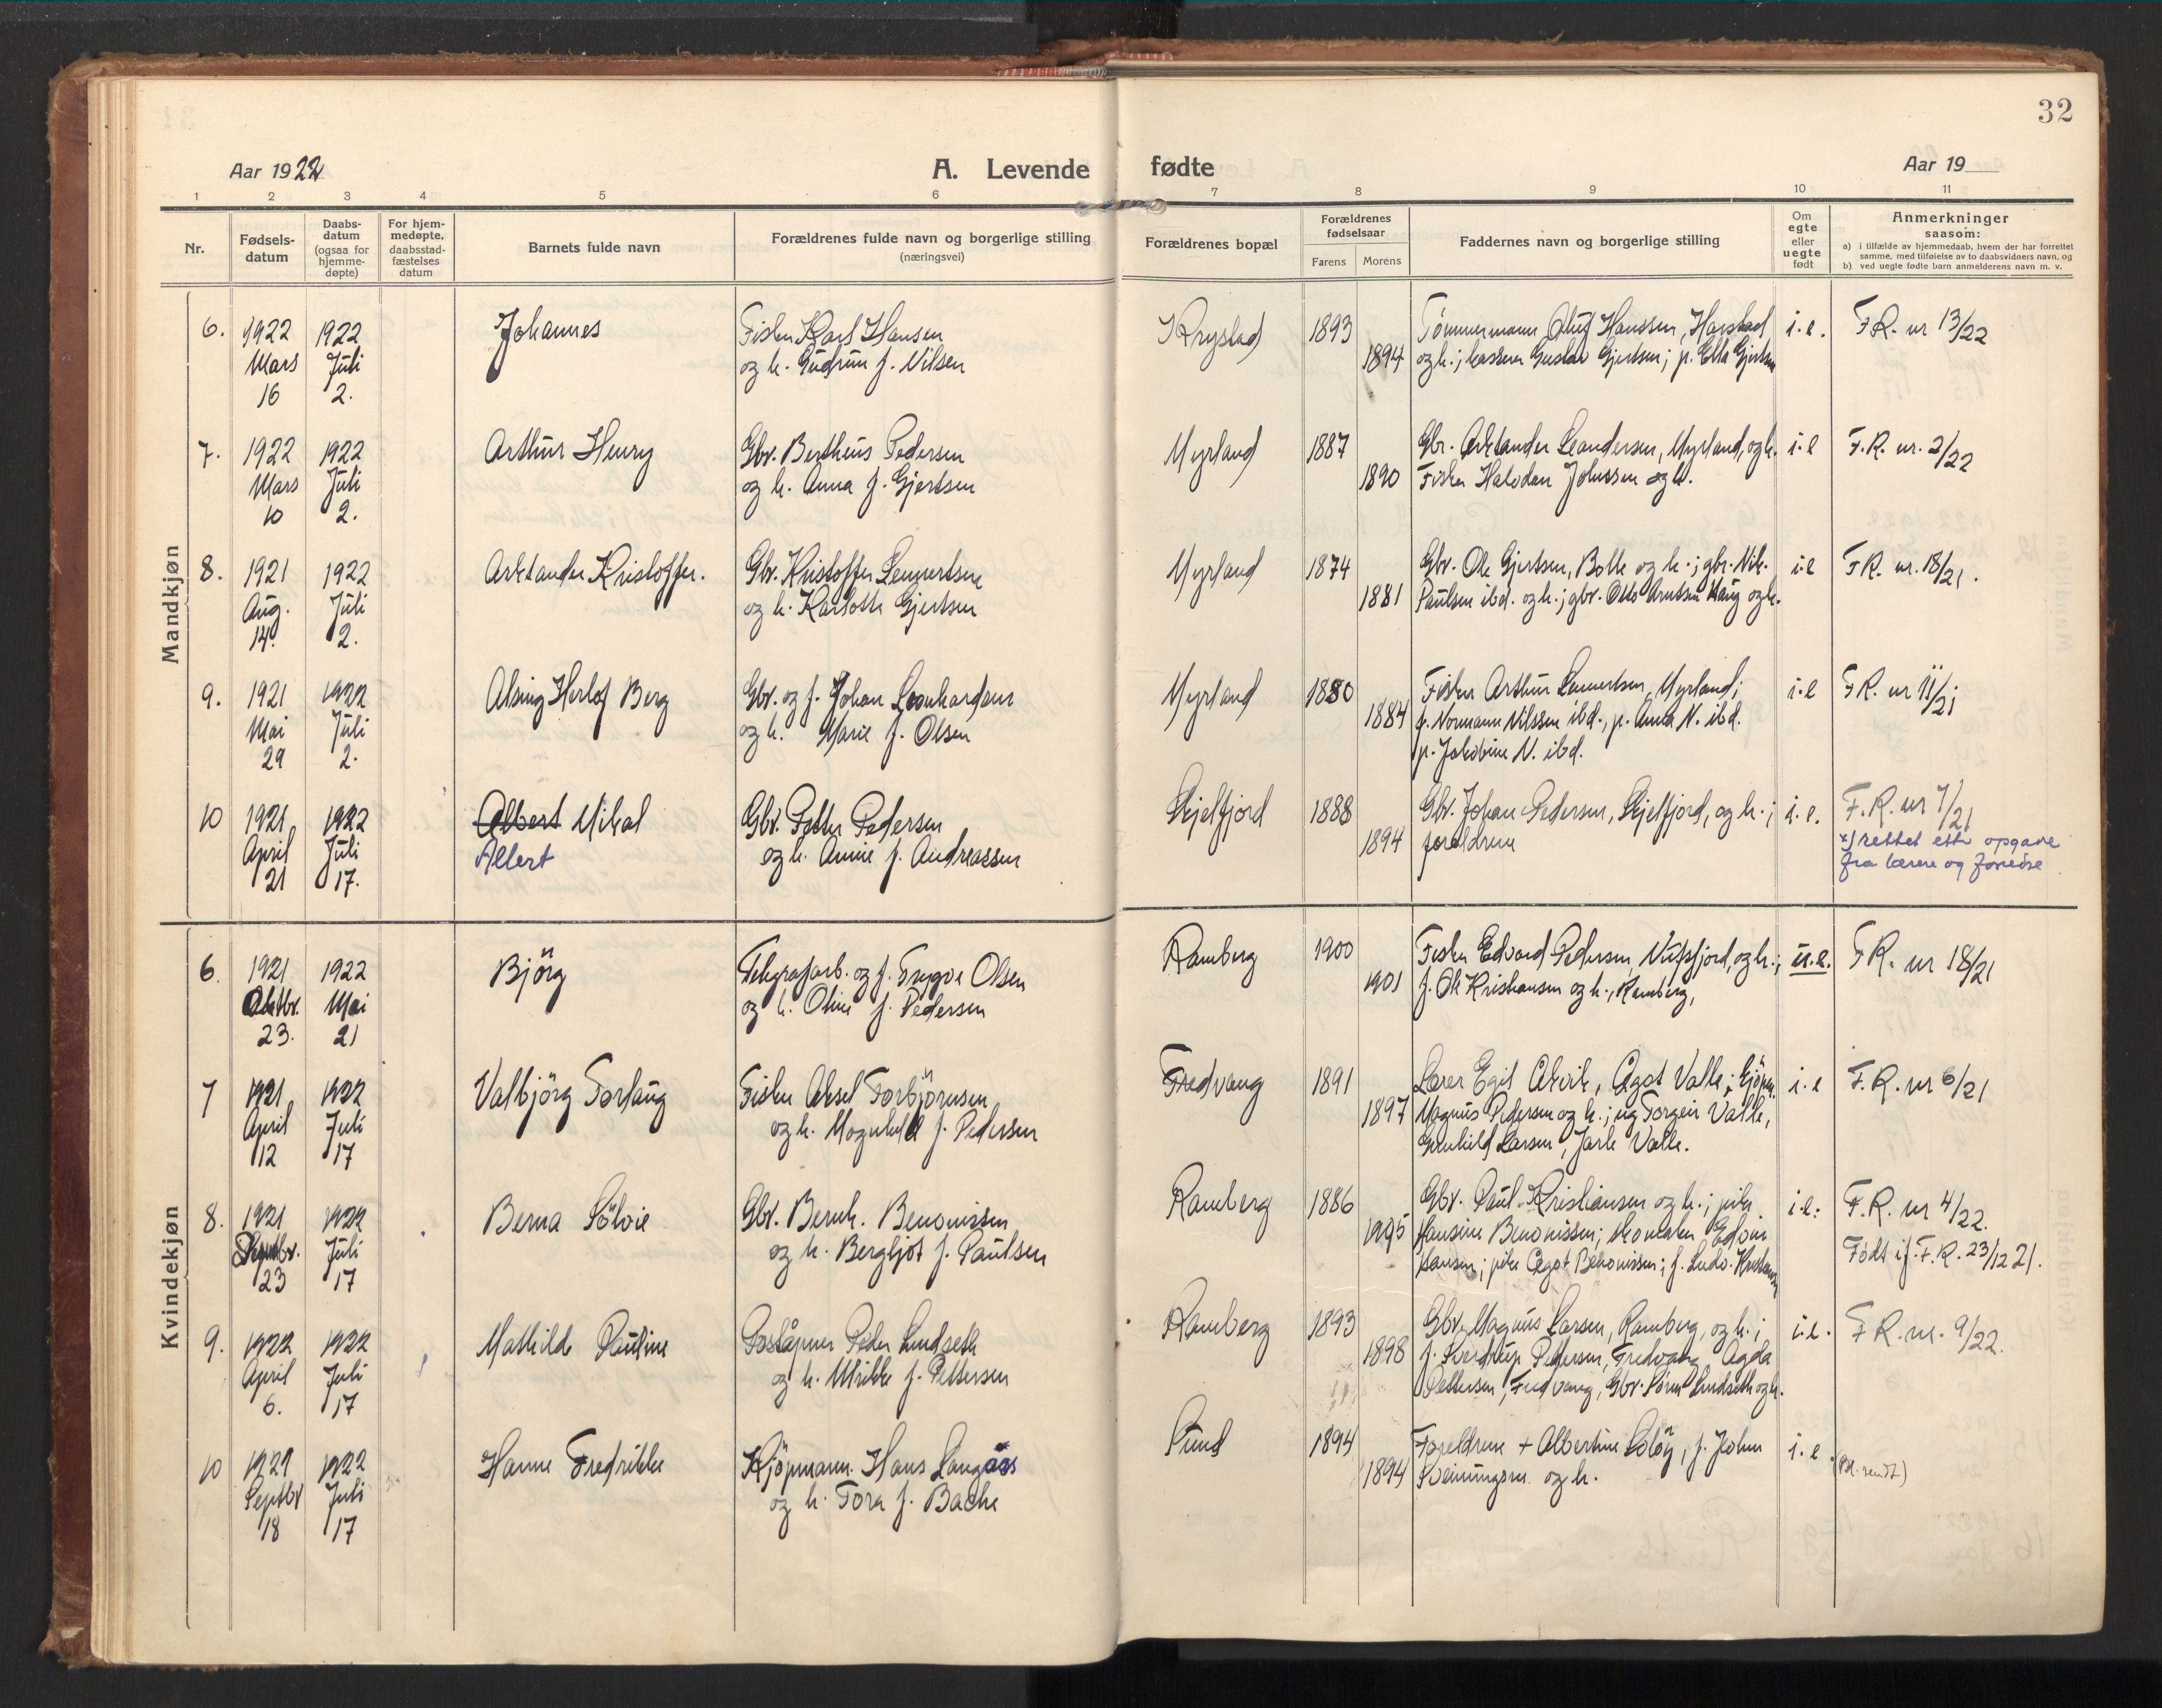 32
Aar 1922
A. Levende
fødte
Aar 19
1 2 3 4 5 6 7 8 9 10 11
Nr.
Fødsels-
datum
Daabs-
datum
(ogsaa for
hjemme-
døpte)
For hjem-
medøpte,
daabsstad-
fæstelses
datum
Barnets fulde navn
Forældrenes fulde navn og borgerlige stilling
(næringsvei)
Forældrenes bopæl
Forældrenes
fødselsaar
Farens
Morens
Faddernes navn og borgerlige stilling
Om
egte
eller
uegte
født
Anmerkninger
saasom:
a) i tilfælde av hjemmedaab, hvem der har forrettet
samme, med tilføielse av to daabsvidners navn, og
b) ved uegte fødte barn anmelderens navn m. v.
Mandkjøn
6. 1922 1922 Johannes Fisker Karl Hansen Krystad 1893 Tömmermann Oluf Hanssen, Harstad i.e. F.R. nr 13/22
Mars Juli og h. Gudrun f. Nilsen 1894 og h.; kasserer Gustav Gjertsen; p. Ella Gjertsen
16 2.
7. 1922 1922 Arthur Henry Gbr. Bertheus Pedersen Myrland 1887 Gbr. Arktander Leandersen, Myrland, og h. i.e F.R. nr. 2/22
Mars Juli og h. Anna f. Gjertsen 1890 Fisker Halvdan Johnssen og h.
10 2.
8. 1921 1922 Arktander Kristoffer. Gbr. Kristoffer Lennertsen Myrland 1874 Gbr. Ole Gjertsen, Bolle og h.; gbr. Nik. i.e F.R. nr. 18/21.
Aug. Juli og h. Karlotte Gjertsen 1881 Paulsen ibd. og h.; gbr. Otto Arntsen Haug og h.
14. 2.
9. 1921 1922 Alsing Herlof Berg Gbr. og f. Johan Leonhardsen Myrland 1880 Fisker Arthur Lennertsen, Myrland; i.e F.R. nr 11/21
Mai Juli og h. Marie f. Olsen 1884 f. Normann Nilssen ibd., p. Anna N. ibd.
29 2. p. Jakobine N. ibd.
10 1921 1922 Albert Mikal Gbr. Petter Pedersen Skjelfjord 1888 Gbr. Johan Pedersen, Skjelfjord, og h.; i.e. F.R. nr 7/21
April Juli Allert og h. Annie f. Andreassen 1894 foreldrene x) rettet ettr opgave
21 17. fra lærere og foreldre
Kvindekjøn
6. 1921 1922 Björg Telegrafarb. og f. Trygve Olsen Ramberg 1900 Fisker Edvard Pedersen, Nufsfjord, og h.; u.e. F.R. nr 18/21
Oktbr. Mai og h. Oline f. Pedersen 1901 f. Ole Kristiansen og h., Ramberg,
23. 21
7 1921 1922 Valbjörg Torlaug Fisker Aksel Torbjörnsen Fredvang 1891 Lærer Egil Alvik, Ågot Valle; Kjöpm. i.e F.R. nr 6/21
April Juli og h. Magnhild f. Pedersen 1897 Magnus Pedersen og h.; ug Torgeir Valle,
12 17 Gunhild Larsen, Jarle Valle.
8. 1921 1922 Berna Sölvie Gbr. Bernh. Benonissen Ramberg 1886 Gbr. Paul Kristiansen og h.; pike i.e. F.R. nr 4/22.
Septbr. Juli og h. Bergljot f. Paulsen 1895 Hansine Benonissen; Edvin Født if. F.R. 23/12 21.
23 17 Hansen; pike Ågot Benonissen; f. Ludv. Kristiansen
9. 1922 1922 Mathilde Pauline Poståpner Peder Lundseth Ramberg 1893 Gbr. Magnus Larsen, Ramberg, og h.; i.e. F.R. nr. 9/22.
April Juli og h. Ulrikke f. Pettersen 1898 f. Sverdrup Pedersen, Fredvang, Agda
6. 17 Pettersen, Fredvang, Gbr. Sören Lundseth og h.
10 1921 1922 Hanne Fredrikke Kjöpmann Hans Langaas Sund 1894 Foreldrene + Albertine Soløy, f. Johan i.e.
Septbr Juli og h. Tora f. Bache 1894 Sveinungsen og h.
18 17